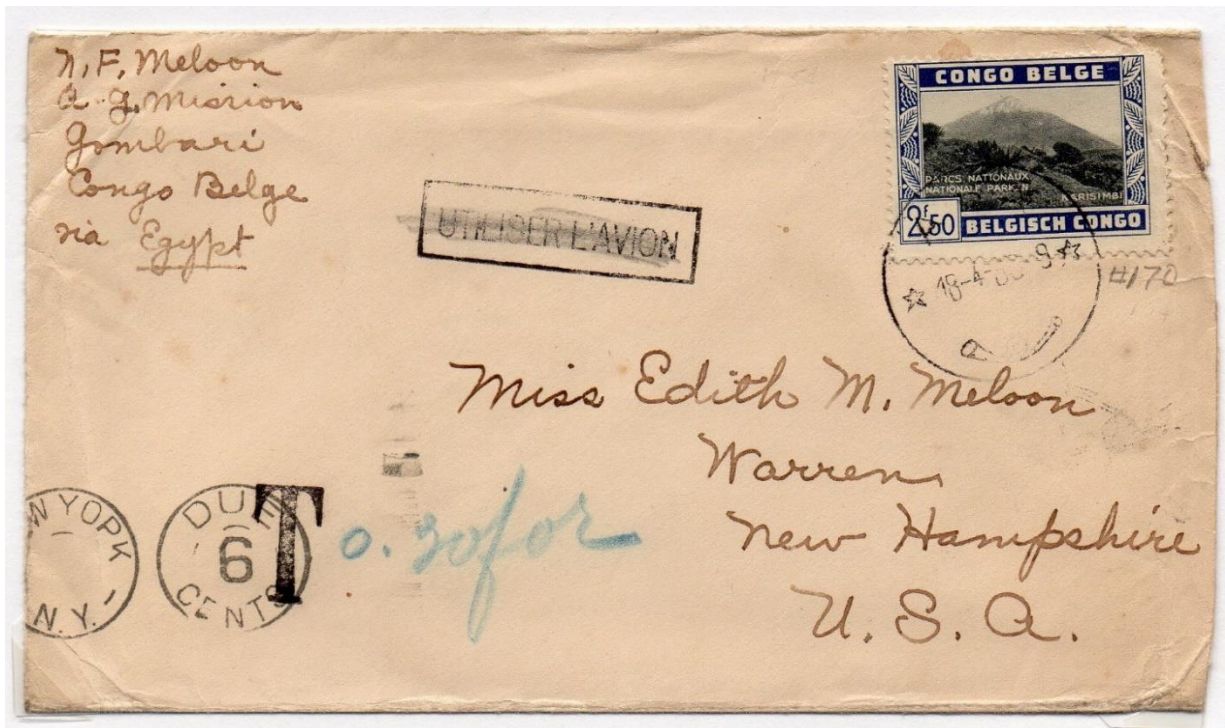 N. F. Meloon
A. G. Mission
Gombari
Congo Belge
via Egypt
UTILISER L'AVION
CONGO BELGE
PARCS NATIONAUX
NATIONALE PARKEN
KARISIMBI
2F50 BELGISCH CONGO
18-4- 9
#170
Miss Edith M. Meloon
Warren
New Hampshire
U. S. A.
W YORK
N.Y.
DUE
6
CENTS
T